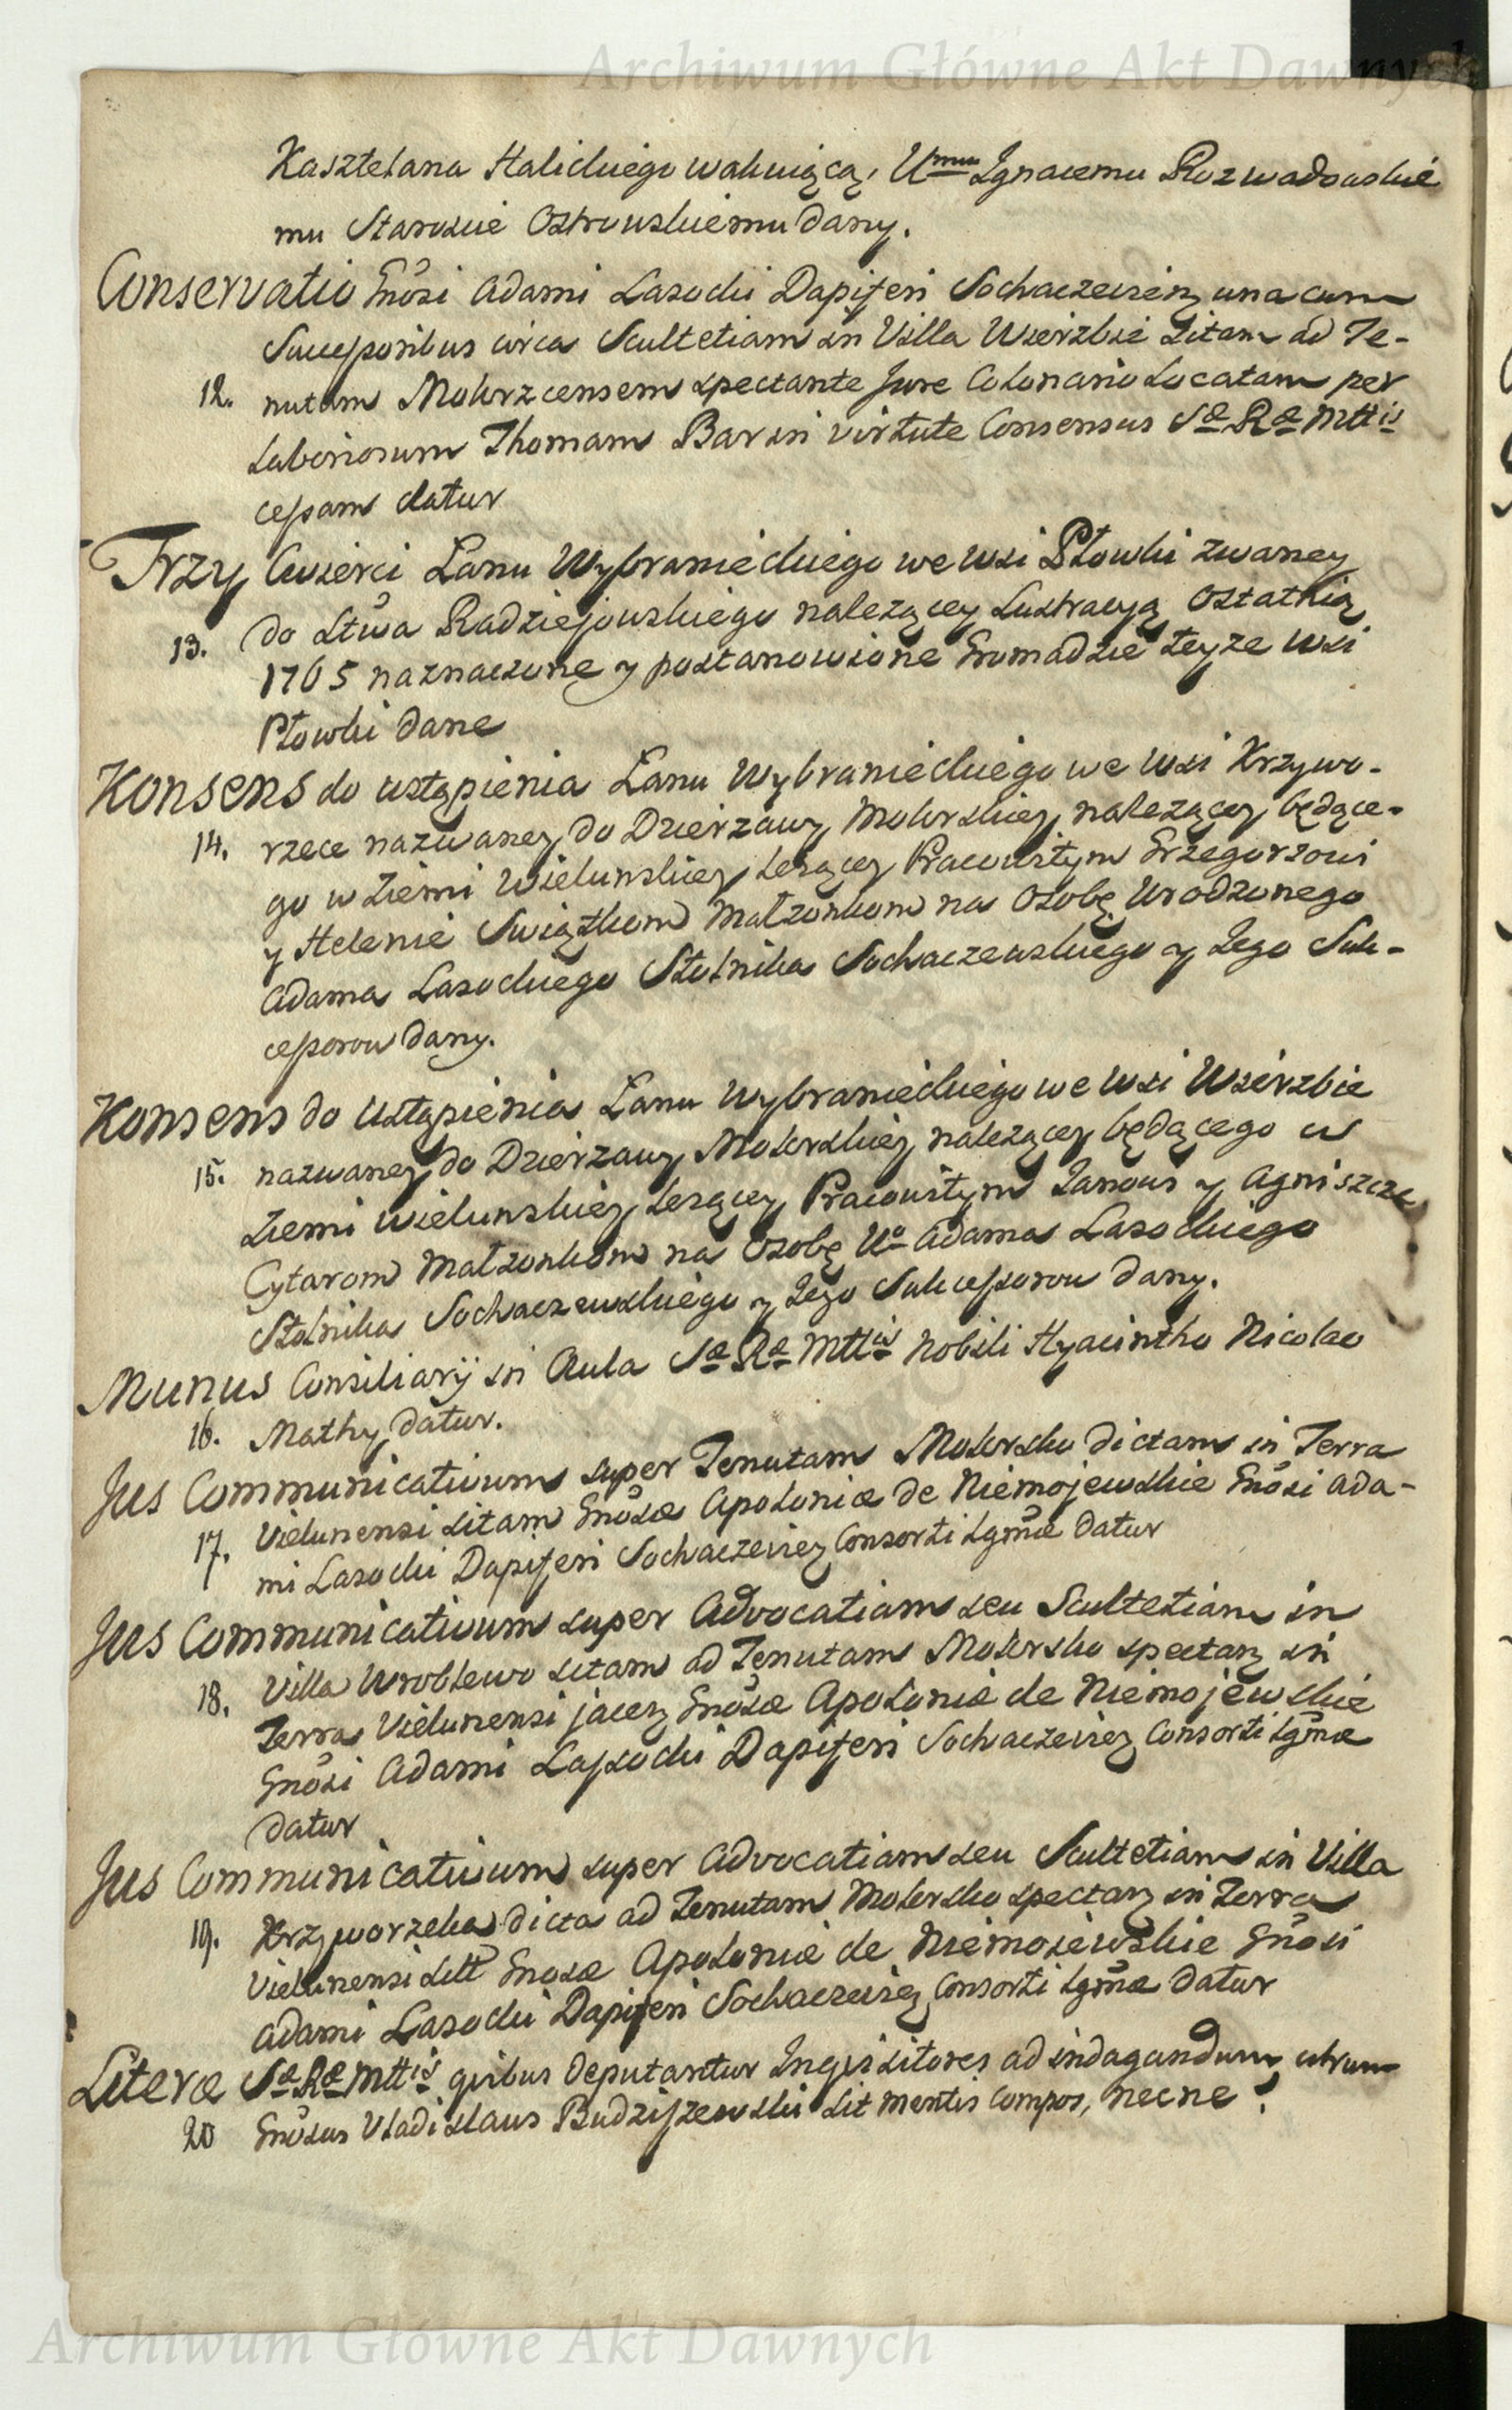 Archiwum Główne Akt Dawnych
Kasztelana Halickiego wakuiącą, Umu Ignacemu Rozwadowskie
mu Staroście Ostrowskiemu dany.
Conservatio Gnosi Adami Lasocki Dapiferi Sochaczeviens una cum
Successoribus circa Scultetiam in Villa Wierzbie sitam ad Te-
12. nutam Mokrzcensem spectante Jure Colonario Locatam per
Laboriosum Thomam Bar in virtute Consensus Sæ Ræ Mttis
cessam datur
Trzy Cwierci Łanu Wybranieckiego we Wsi Płowki zwaney
13. do Stwa Radziejowskiego należącey Lustracyą Ostatnią
1765 naznaczone y postanowione Gromadzie teyże Wsi
Płowki dane
Konsens do ustąpienia Łanu Wybranieckiego we Wsi Krzywo-
14. rzece nazwaney do Dzierzawy Mokrskiey należącey będące-
go w Ziemi Wielunskiey leżącey Pracowitym Grzegorzowi
y Helenie Swiątkom Małżonkom na Osobę Urodzonego
Adama Lasockiego Stolnika Sochaczewskiego y Jego Suk-
cessorow dany.
Konsens do Ustąpienia Łanu Wybranieckiego we Wsi Wierzbie
15. nazwaney do Dzierzawy Mokrskiey należącey będącego w
Ziemi Wielunskiey leżącey Pracowitym Janowi y Agniszcze
Cytarom Małżonkom na Osobę Uo Adama Lasockiego
Stolnika Sochaczewskiego y Jego Sukcessorow dany.
Munus Consiliarij in Aula Sæ Ræ Mttis Nobili Hyacintho Nicolao
16. Mathy datur.
Jus Communicativum super Tenutam Mokrsko dictam in Terra
17. Vielunensi sitam Gnosæ Apoloniæ de Niemojewskie Gnosi Ada-
mi Lasocki Dapiferi Sochaczevien Consorti Lgmæ datur
Jus Communicativum super Advocatiam seu Scultetiam in
18. Villa Wroblewo sitam ad Tenutam Mokrsko spectan in
Terra Vielunensi jacen Gnosæ Apoloniæ de Niemojewskie
Gnosi Adami Lassocki Dapiferi Sochaczevien Consorti Lgmæ
datur
Jus Communicativum super Advocatiam seu Scultetiam in Villa
19. Krzyworzeka dicta ad Tenutam Mokrsko spectan in Terra
Vielunensi sitt Gnosæ Apoloniæ de Niemoiewskie Gnosi
Adami Lasocki Dapiferi Sochaczevien Consorti Lgmæ datur
Literæ Sæ Ræ Mttis quibus deputantur Inquisitores ad indagandum, utrum
20 Gnosus Vladislaus Budziszewski sit mentis compos, necne?
Archiwum Główne Akt Dawnych